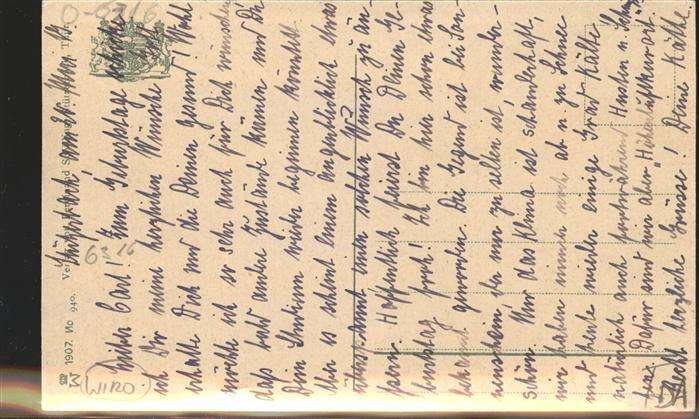 O-6316
Kufstein am 26. Mai 19
Lieber Carl! Zum Geburtstage schicke
ich Dir meine herzlichen Wünsche. Gott
erhalte Dich und die Deinen gesund! Wohl
möchte ich so sehr auch für Dich wünschen
daß bald andere Zustände kämen und Du
Dein Studium wieder beginnen könntest
Aber es scheint einem augenblicklich etwas
kühn, auch einen solchen Wunsch zu äu-
ßern. Hoffentlich feierst Du Deinen Ge-
burtstag froh! Ich bin hier schon etwas
bekannt geworden. Die Gegend ist bei Son-
nenschein der nur zu selten ist, wunder-
schön. Nur das Klima ist schauderhaft,
wir haben immer noch ab u zu Schnee
und heute wieder einige Grad Kälte,
natürlich auch fortwährend Husten u.
Dafür sind wir aber "Höhenluftkurort".
Recht herzliche Grüsse! Deine Käthe
6316
1907. No 940.
(WIRO)